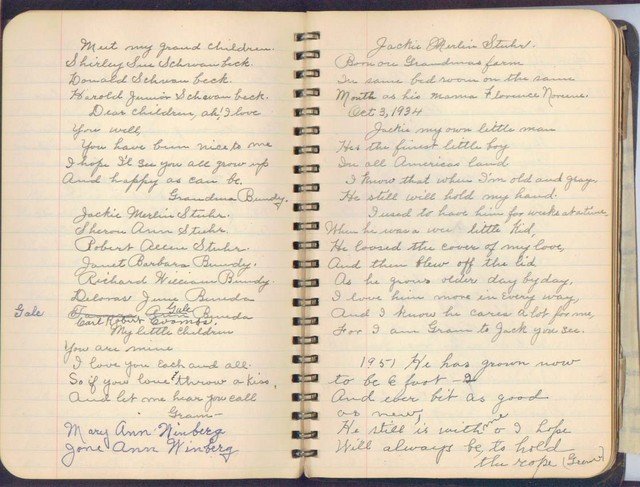 Meet my grand children.
Shirley Sue Schwanbeck.
Donald Schwanbeck.
Harold Junior Schwanbeck.
Dear children, ah! I love
You well,
You have been nice to me
I hope I'll see you all grow up
And happy as can be.
Grandma Bundy.
Jackie Merlin Stuhr.
Sheron Ann Stuhr.
Robert Allen Stuhr.
Janet Barbara Bundy.
Richard William Bundy.
Deloras June Bunda
Gale
Gale
Bunda
Carl Robert Coombs.
My little children
You are mine
I love you Each and all.
So if you love throw a kiss,
And let me hear you call
Gram—
Mary Ann Winberg
Jone Ann Winberg
Jackie Merlin Stuhr.
Born on Grandmas farm
In same bed room on the same
Month as his mama Florence
Oct 3, 1934
Jackie my own little man
Has the finest little boy
In all Americas land
I know that when I'm old and gray,
He still will hold my hand.
I used to have him for weeks at a time,
When he was a wee little kid,
He loosed the cover of my love,
And then blew off the lid
As he grows older day by day,
I love him more in Every way,
And I know he cares a lot for me,
For I am Gram to Jack you see.
1951 He has grown now
to be 6 foot - 2
And ever bit as good
as new,
He still is with I hope
Will always be to hold
the rope (Gram)